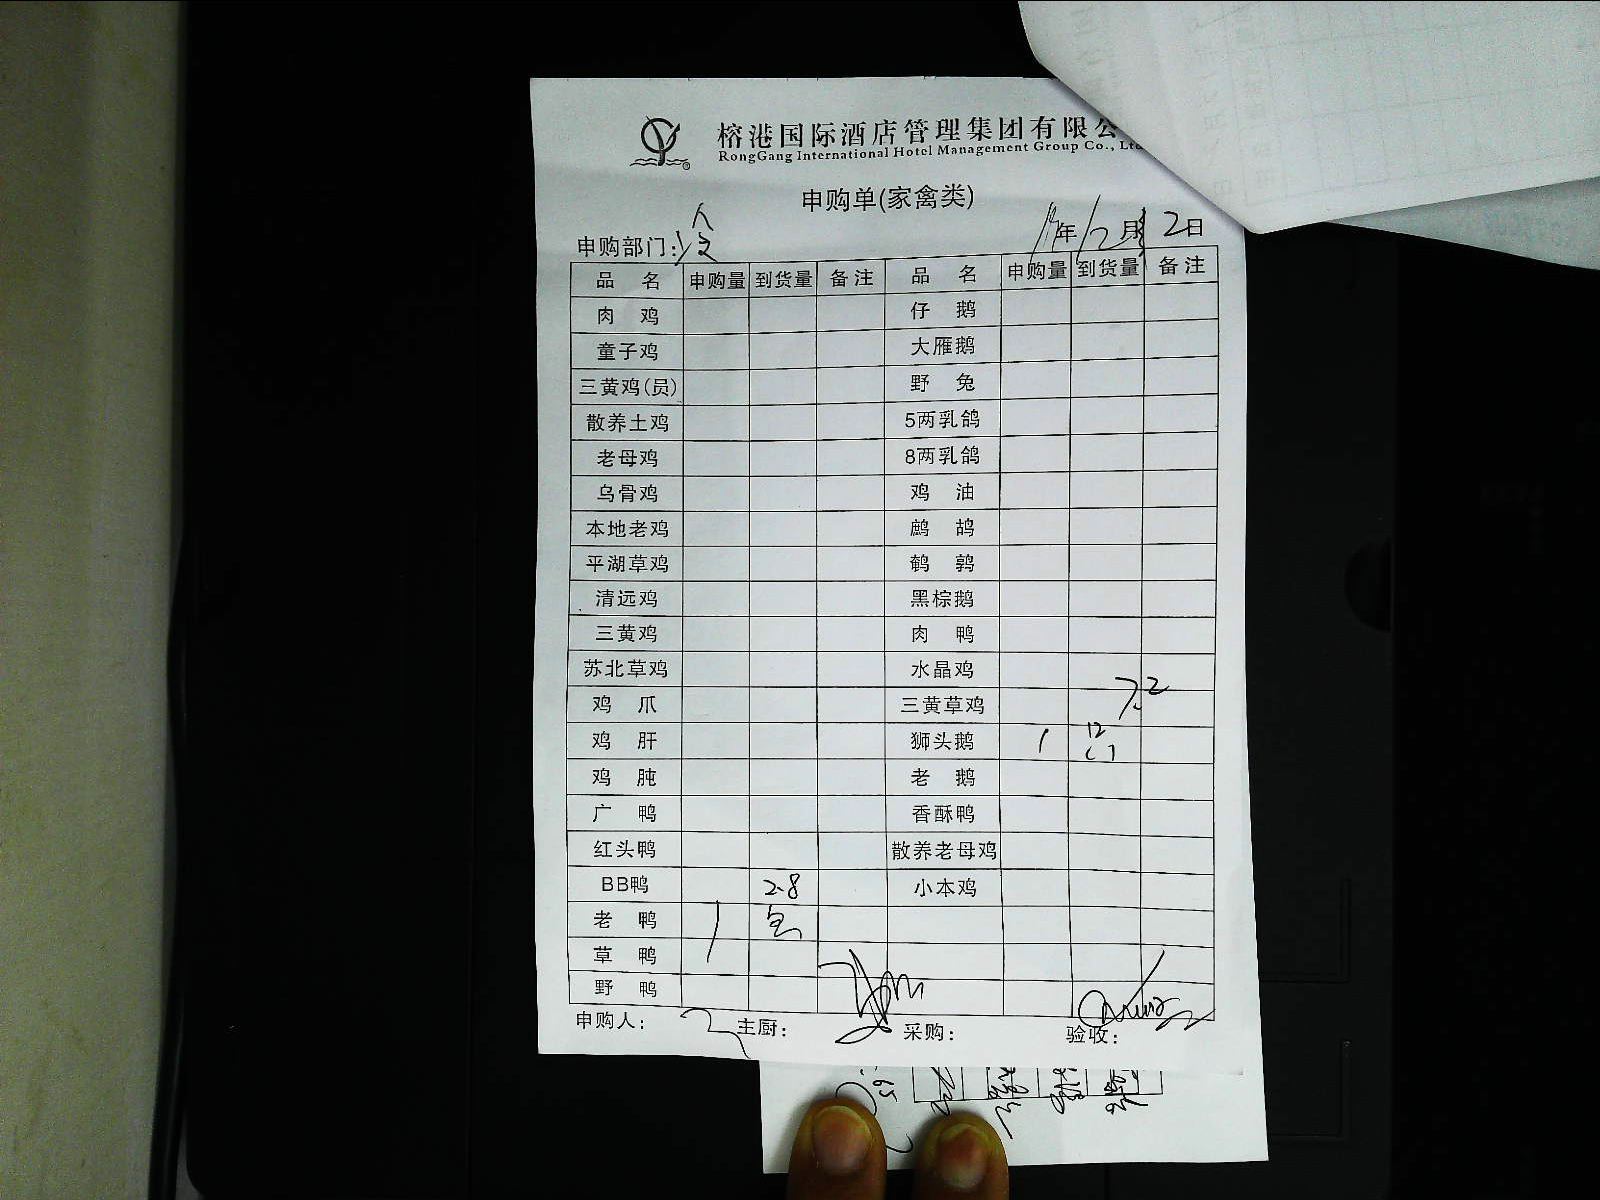 榕港国际酒店管理集团有限公
RongGang International Hotel Management Group Co., Ltd
申购单(家禽类)
申购部门: 年12月2日
品 名 申购量 到货量 备注 品 名 申购量 到货量 备注
肉 鸡 仔 鹅
童子鸡 大雁鹅
三黄鸡(员) 野 兔
散养土鸡 5两乳鸽
老母鸡 8两乳鸽
乌骨鸡 鸡 油
本地老鸡 鹧 鸪
平湖草鸡 鹌 鹑
清远鸡 黑棕鹅
三黄鸡 肉 鸭
苏北草鸡 水晶鸡
鸡 爪 三黄草鸡 7.2
鸡 肝 狮头鹅 1
鸡 肫 老 鹅
广 鸭 香酥鸭
红头鸭 散养老母鸡
BB鸭 2.8 小本鸡
老 鸭 1
草 鸭
野 鸭
申购人: 主厨: 采购: 验收: